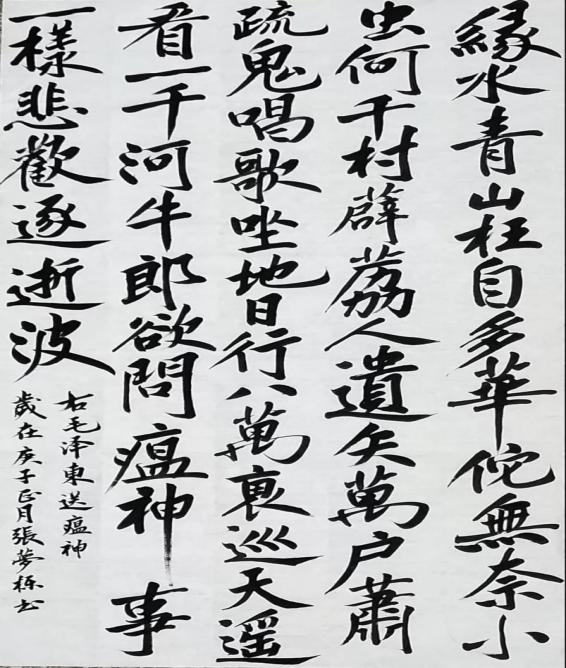 緣水青山枉自多華佗無奈小
虫何千村薜荔人遺矢萬户蕭
疏鬼唱歌坐地日行八萬裏巡天遥
看一千河牛郎欲問瘟神事
一樣悲歡逐逝波
右毛泽東送瘟神
歲在庚子正月張夢栋书